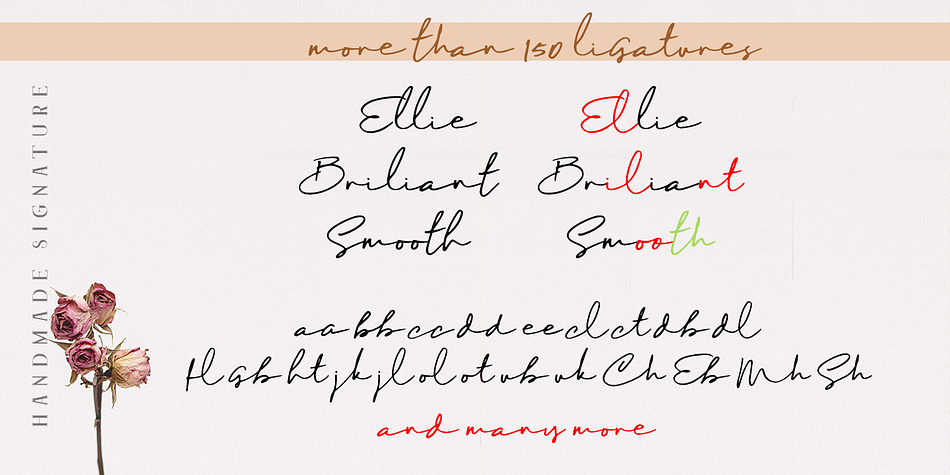 more than 150 ligatures
HANDMADE SIGNATURE
Ellie Ellie
Briliant Briliant
Smooth Smooth
aa bb cc dd ee cl ct db dl
Hl gb ht jk jl ol ot ub uk Ch Eb Mh Sh
and many more